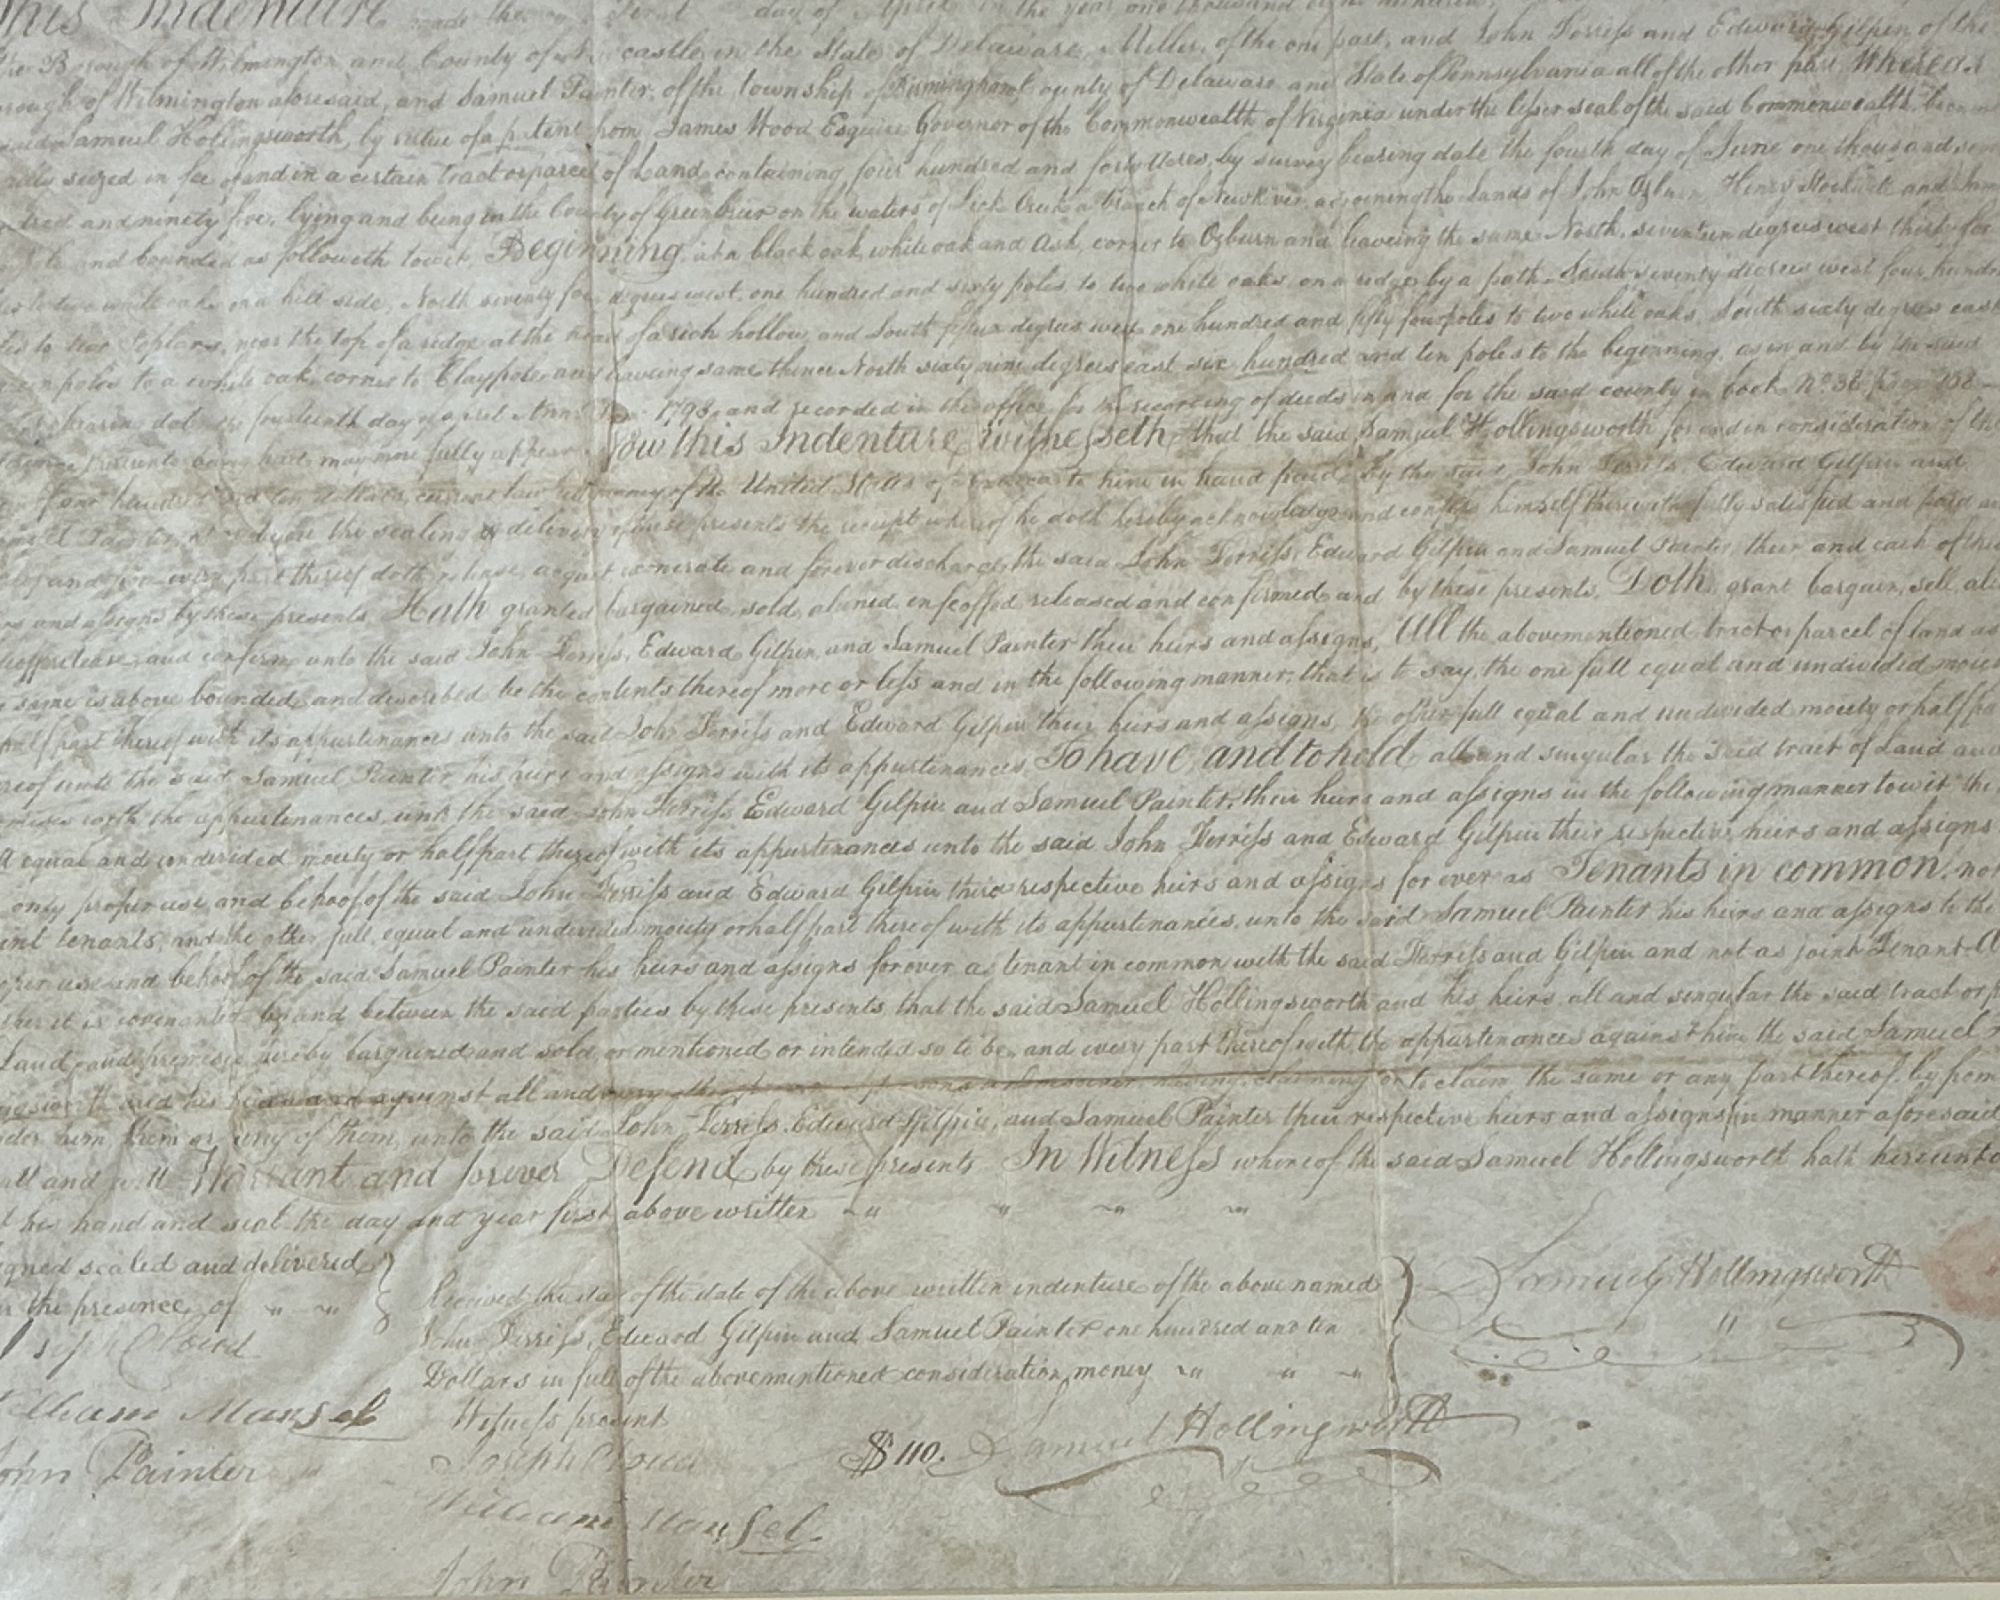 This Indenture made the first day of April in the year one thousand eight hundred
the Borough of Wilmington and County of Newcastle in the State of Delaware, Miller, of the one part, and John Ferriss and Edward Gilpin of the
Borough of Wilmington aforesaid, and Samuel Painter, of the township of Birmingham County of Delaware and State of Pennsylvania all of the other part, Whereas
said Samuel Hollingsworth, by virtue of a patent from James Wood Esquire Governor of the Commonwealth of Virginia under the lesser seal of the said Commonwealth,
seized in fee of and in a certain tract or parcel of Land containing four hundred and forty Acres, by survey bearing date the fourth day of June one thousand
and ninety five, lying and being in the County of Greenbrier on the waters of Lick Creek a branch of New river, adjoining the Lands of John Ozburn, Henry Stockwell and
and bounded as followeth towit, Beginning, at a black oak, white oak and Ash, corner to Ozburn and leaveing the same North, seventeen degrees west thirty
to two white oaks on a hill side, North seventy degrees west, one hundred and sixty poles to two white oaks, on a ridge by a path South seventy degrees west four hundred
to two Poplars, near the top of a ridge at the head of a rich hollow, and South fifteen degrees west one hundred and fifty four poles to two white oaks, South sixty degrees east
poles to a white oak, corner to Claypole, and leaveing same thence North sixty nine degrees east six hundred and ten poles to the beginning, as in and by the said
bearing date the fourteenth day of April Anno Dom. 1798, and recorded in the office for the recording of deeds in and for the said county in book No. 36
presents being had, may more fully appear Now this Indenture witnesseth that the said Samuel Hollingsworth for and in consideration of the
of one hundred and ten dollars, current lawful money of the United States of America to him in hand paid, by the said John Ferriss, Edward Gilpin and
Samuel Painter, at and upon the sealing & delivery of these presents the receipt whereof he doth hereby acknowledge and confess himself therewith fully satisfied and paid
and every part thereof doth release, acquit exonerate and forever discharge the said John Ferriss, Edward Gilpin and Samuel Painter, their and each of their
and assigns by these presents, Hath granted bargained, sold, aliened, enfeoffed released and confirmed and by these presents, Doth, grant bargain, sell
release and confirm unto the said John Ferriss, Edward Gilpin, and Samuel Painter their heirs and assigns, All the abovementioned tract or parcel of land as
same is above bounded and described be the contents thereof more or less and in the following manner; that is to say, the one full equal and undivided
half part thereof with its appurtenances unto the said John Ferriss and Edward Gilpin their heirs and assigns, the other full equal and undivided moiety or half
unto the said Samuel Painter, his heirs and assigns with its appurtenances To have, and to hold all and singular the said tract of Land and
with the appurtenances, unto the said John Ferriss Edward Gilpin and Samuel Painter, their heirs and assigns in the following manner towit the
equal and undivided moiety or half part thereof with its appurtenances unto the said John Ferriss and Edward Gilpin their respective heirs and assigns
only proper use, and behoof of the said John Ferriss and Edward Gilpin their respective heirs and assigns for ever as Tenants in common, not
tenants, and the other full, equal and undivided moiety or half part thereof with its appurtenances, unto the said Samuel Painter his heirs and assigns to the
use and behoof of the said Samuel Painter his heirs and assigns forever as tenant in common with the said Ferriss and Gilpin and not as joint Tenant
it is covenanted by and between the said parties by these presents that the said Samuel Hollingsworth and his heirs, all and singular the said tract or
Land, and premises hereby bargained and sold, or mentioned or intended so to be, and every part thereof with the appurtenances against him the said Samuel
and his heirs and against all and every other person or persons whomsoever having, claiming or to claim the same or any part thereof, by from
under him, them or any of them, unto the said John Ferriss, Edward Gilpin, and Samuel Painter their respective heirs and assigns in manner aforesaid
and will Warrant and forever Defend by these presents In Witness whereof the said Samuel Hollingsworth hath hereunto
his hand and seal the day and year first above written
signed sealed and delivered
in the presence of
Joseph Cloud
William Mansel
John Painter
Received the day of the date of the above written indenture of the above named
John Ferriss, Edward Gilpin and Samuel Painter one hundred and ten
Dollars in full of the abovementioned consideration money
Witness present
Joseph Cloud
William Mansel
John Painter
$110. Samuel Hollingsworth
Samuel Hollingsworth